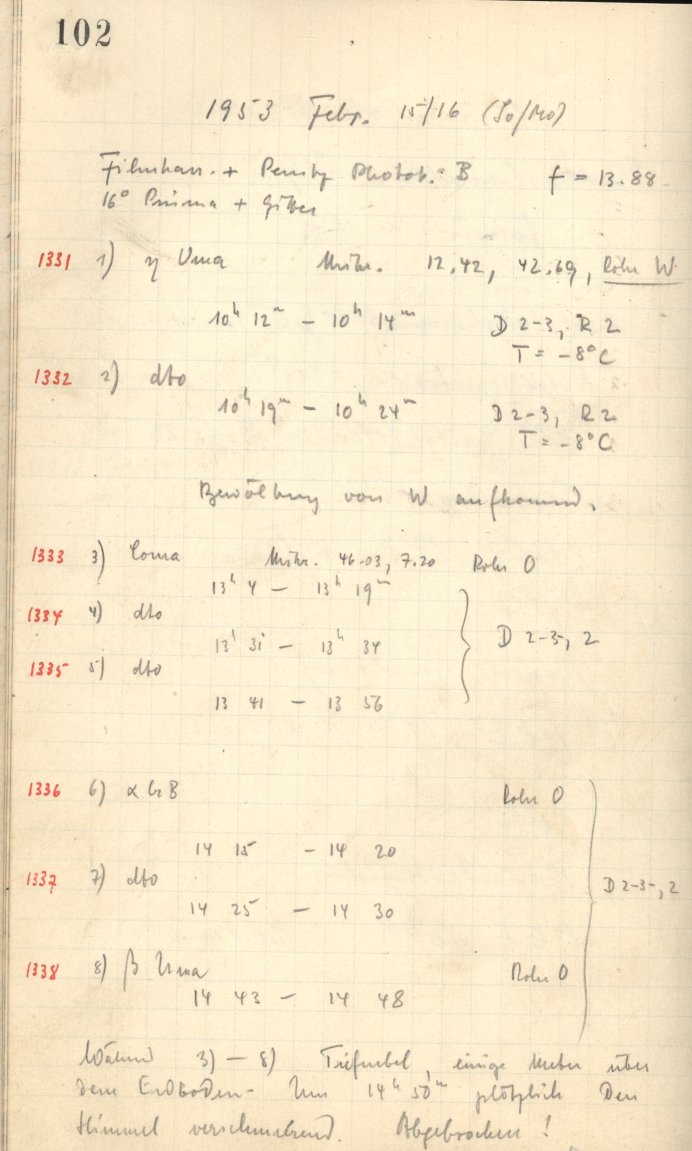 102
1953 Febr. 15/16 (So/Mo)
+ Photob. B f = 13.88
16° Prisma + Gitter
1331 1) η Uma Mikr. 12.42, 42.69, Rohr W
10h 12m – 10h 14m D 2-3, R 2
T = -8°C
1332 2) dto
10h 19m – 10h 24m D 2-3, R 2
T = -8°C
Bewölkung von W aufkommd.
1333 3) Coma Mikr. 46.03, 7.20 Rohr O
13h 4 – 13h 19m
1334 4) dto
13h 31 – 13h 34 D 2-3, 2
1335 5) dto
13 41 – 13 56
1336 6) α Rohr O
14 15 – 14 20
1337 7) dto D 2-3, 2
14 25 – 14 30
1338 8) β Uma Rohr O
14 43 – 14 48
Währnd 3) – 8) Tiefnebel, einige Meter über
dem Erdboden. Um 14h 50m plötzlich Den
Himmel verschmierend. Abgebrochen!